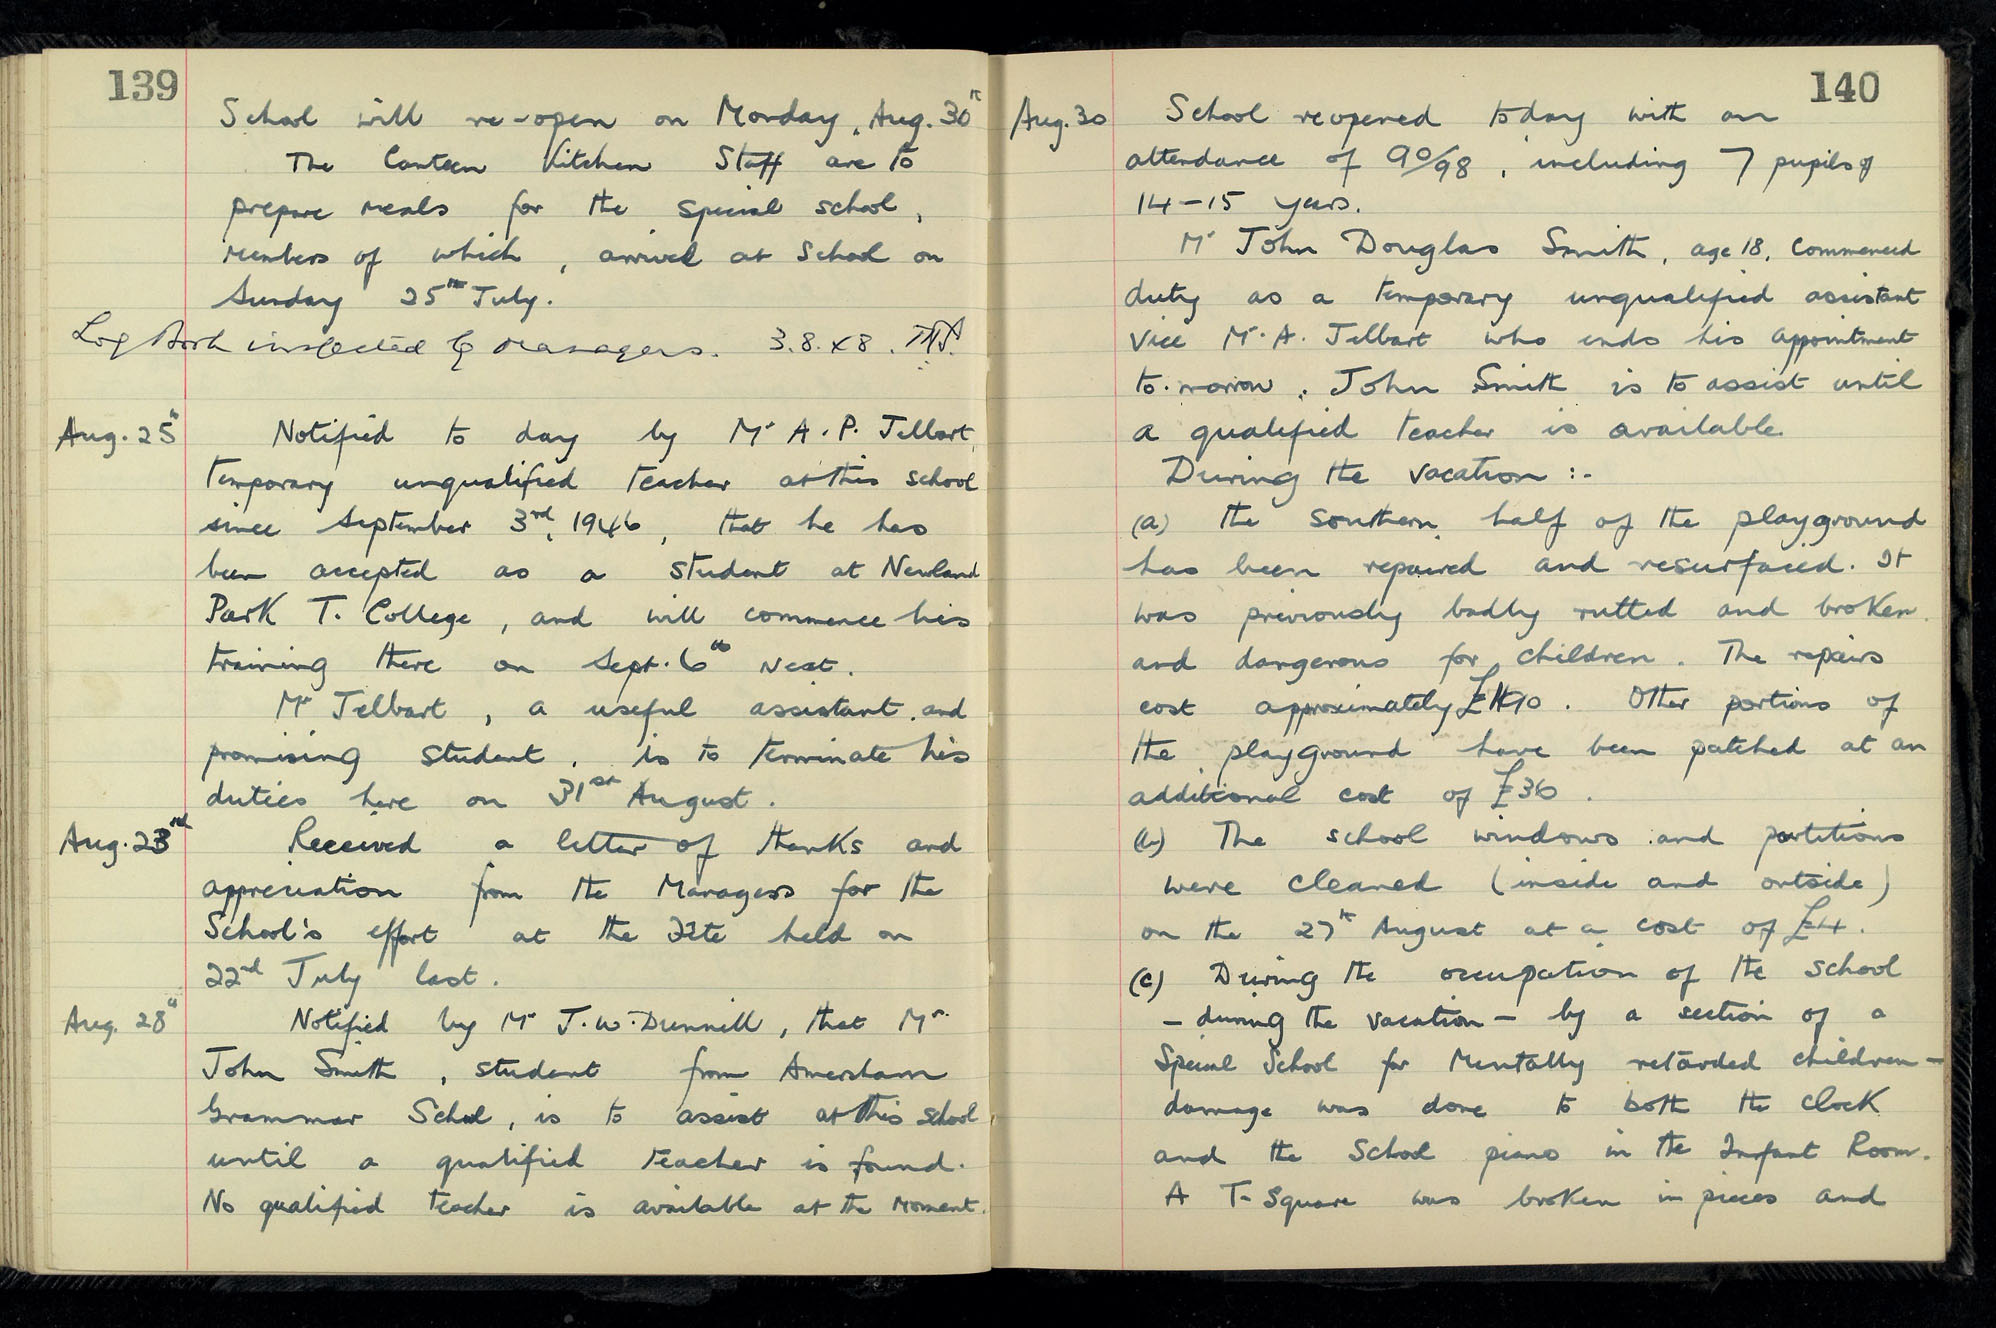 139
School will re-open on Monday, Aug. 30th
The Canteen Kitchen Staff are to
prepare meals for the special school,
members of which, arrived at School on
Sunday 25th July.
Log Book inspected by Managers. 3.8.48.
Aug. 25th Notified to day by Mr A. P. Jelbart,
temporary unqualified teacher at this school
since September 3rd, 1946, that he has
been accepted as a student at Newland
Park T. College, and will commence his
training there on Sept. 6th next.
Mr Jelbart, a useful assistant and
promising student, is to terminate his
duties here on 31st August.
Aug. 23rd Received a letter of thanks and
appreciation from the Managers for the
School's effort at the Fête held on
22nd July last.
Aug. 28th Notified by Mr J. W. Dunnill, that Mr.
John Smith, student from Amersham
Grammar School, is to assist at this school
until a qualified teacher is found.
No qualified teacher is available at the moment.
140
Aug. 30 School reopened today with an
attendance of 90/98, including 7 pupils of
14-15 years.
Mr John Douglas Smith, age 18, commenced
duty as a temporary unqualified assistant
vice Mr. A. Jelbart who ends his appointment
to-morrow. John Smith is to assist until
a qualified teacher is available.
During the vacation :-
(a) the southern half of the playground
has been repaired and resurfaced. It
was previously badly rutted and broken
and dangerous for children. The repairs
cost approximately. Other portions of
the playground have been patched at an
additional cost of £36.
(b) The school windows and partitions
were cleaned (inside and outside)
on the 27th August at a cost of £4.
(c) During the occupation of the school
- during the vacation - by a section of a
Special School for Mentally retarded children -
damage was done to both the clock
and the School piano in the Infant Room.
A T-Square was broken in pieces and